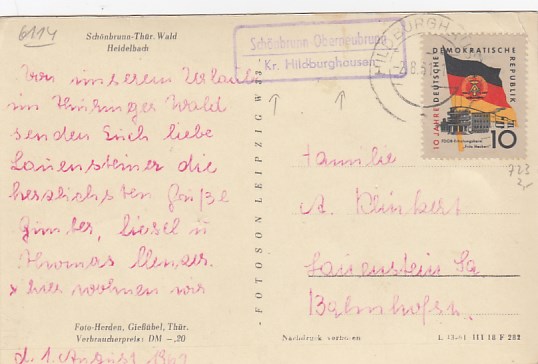 6114
Schönbrunn-Thür. Wald
Heidelbach
Schönbrunn-Oberneubrunn
Kr. Hildburghausen
HILDBURGH
10 JAHRE DEUTSCHE DEMOKRATISCHE REPUBLIK
10
723
Von unserem Urlaub
im Thüringer Wald
senden Euch liebe
Lauensteiner die
herzlichsten Grüße
Günter, Liesel u
Thomas
x hier wohnen wir
d. 1. August 1961
FOTOSON LEIPZIG W 33
Familie
A. Klinkert
Lauenstein Sa.
Bahnhofstr.
Foto-Herden, Gießübel, Thür.
Verbraucherpreis: DM -,20
Nachdruck verboten
III 18 F 282